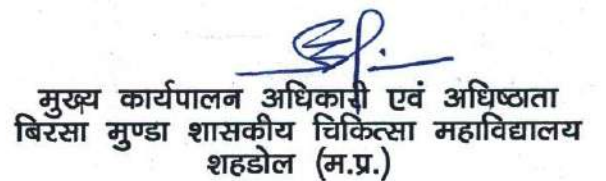 मुख्य कार्यपालन अधिकारी एवं अधिष्ठाता
बिरसा मुण्डा शासकीय चिकित्सा महाविद्यालय
शहडोल (म.प्र.)